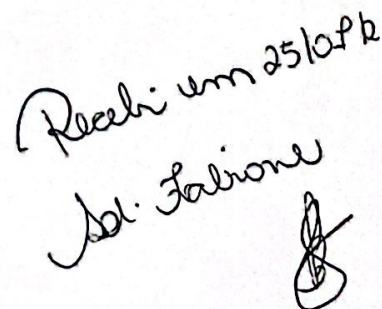 Recebi em 25/07/12
Sd. Fabione